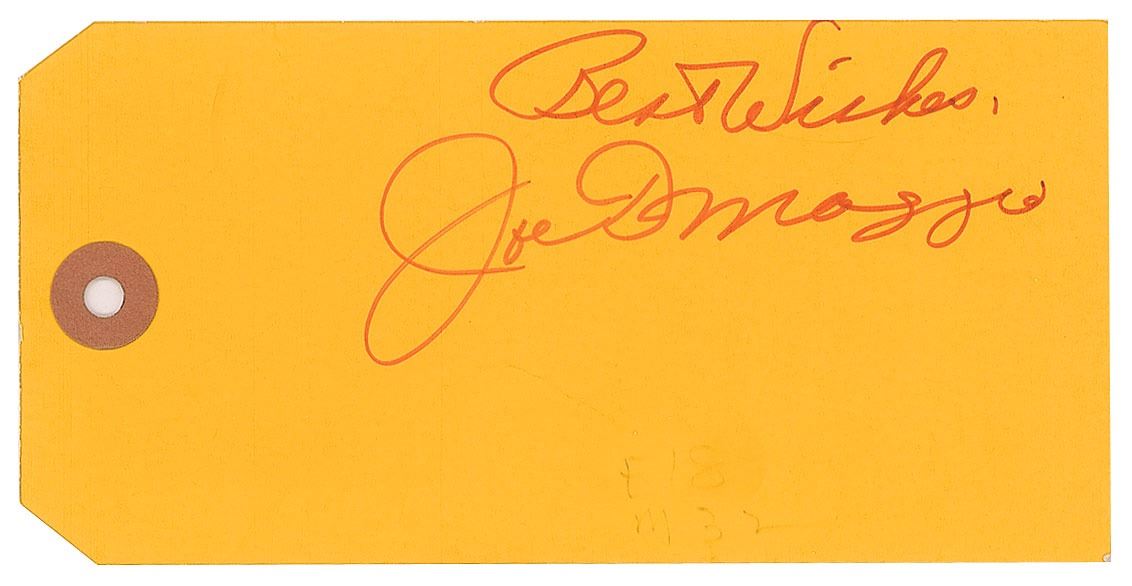 Best Wishes,
Joe DiMaggio
F18
M32